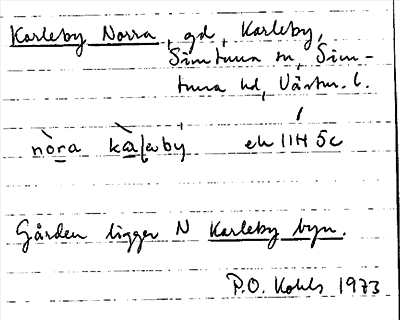 Karleby Norra, gd, Karleby,
Simtuna sn, Sim-
tuna hd, Västm. l.
nòra kàlabẏ ek 11H 5c
Gården ligger N Karleby byn.
P.O. Kohls 1973